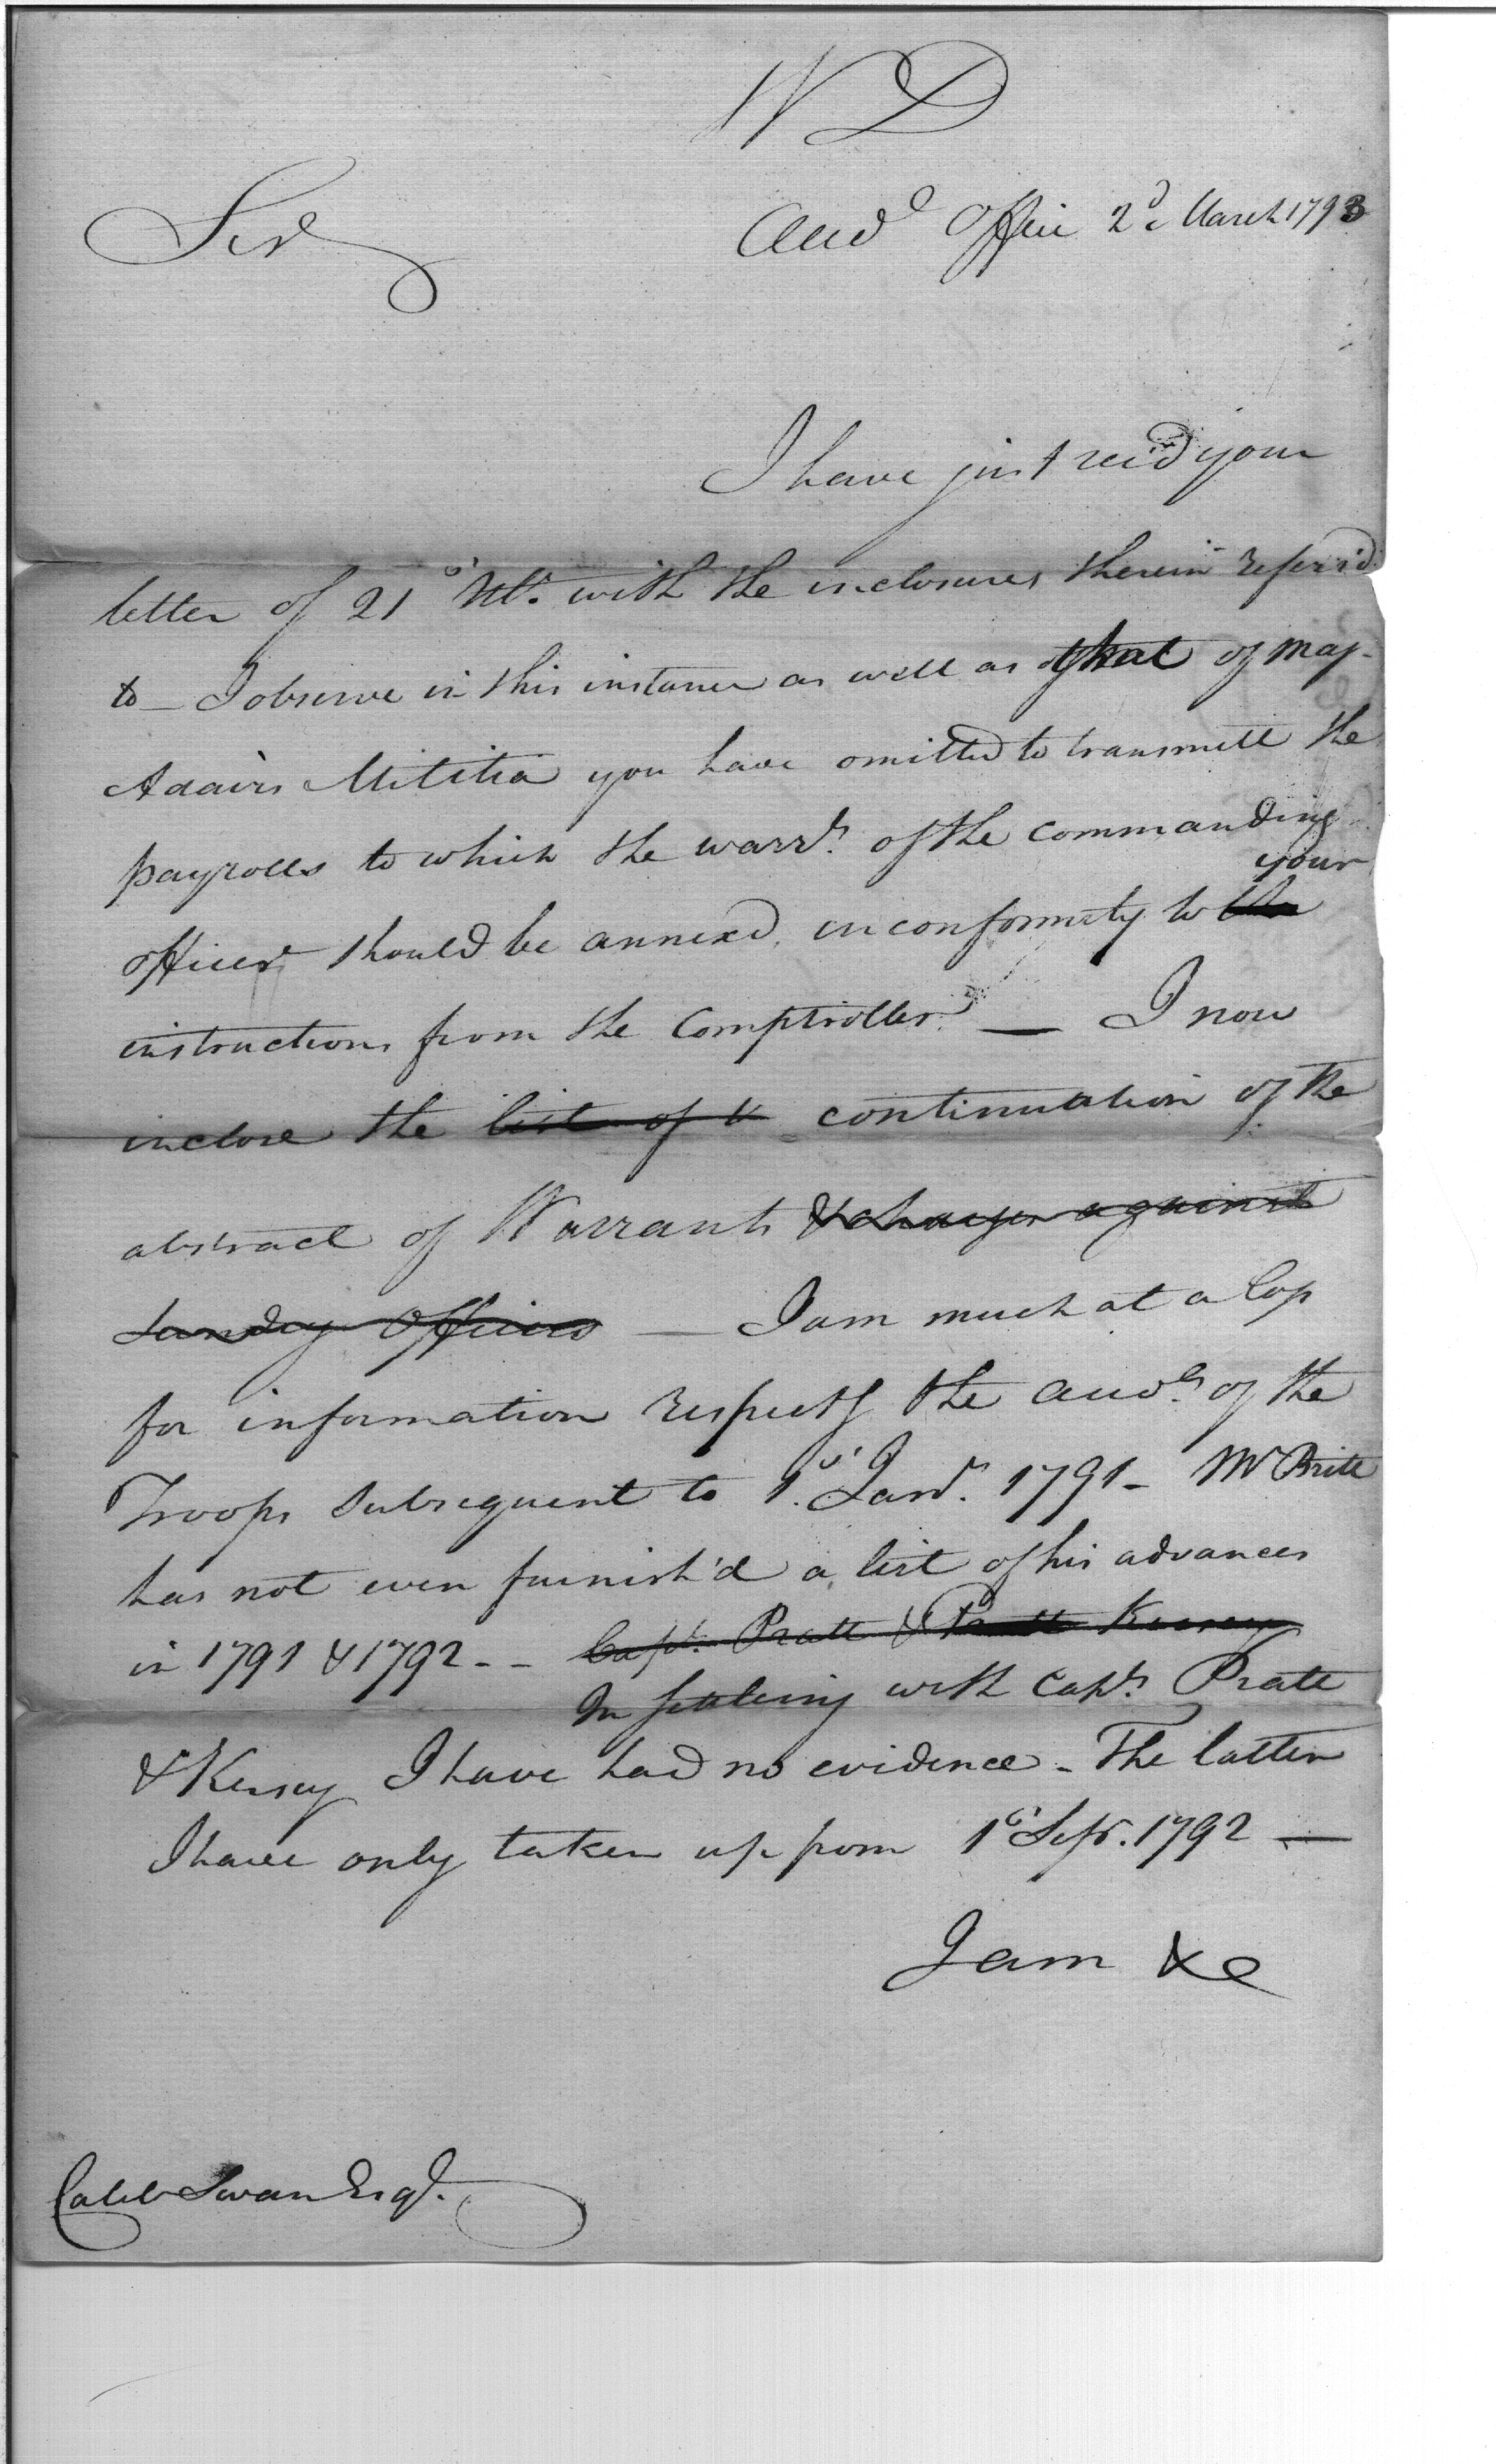 W D
Sir
Accts Office 2d March 1793
I have just rec'd your
letter of 21st Ulto. with the inclosures therein referr'd
to — I observe in this instance as well as that of Maj.
Adairs Militia you have omitted to transmitt the
payrolls to which the warrts. of the commanding
your
officer should be annexed, in conformity to the
instructions from the Comptroller. — I now
inclose the list of v continuation of the
abstract of Warrants & charges against
Sundry Officers — I am much at a loss
for information respectg the accots. of the
Troops subsequent to 1st. Jany. 1791 - Mr Britt
has not even furnish'd a list of his advances
in 1791 & 1792 - - Capt. Pratt & Pratt Kersey
In settling with Capts. Pratt
& Kersey I have had no evidence - The latter
I have only taken up from 1st Sepr. 1792 —
I am &c
Caleb Swan Esqr.